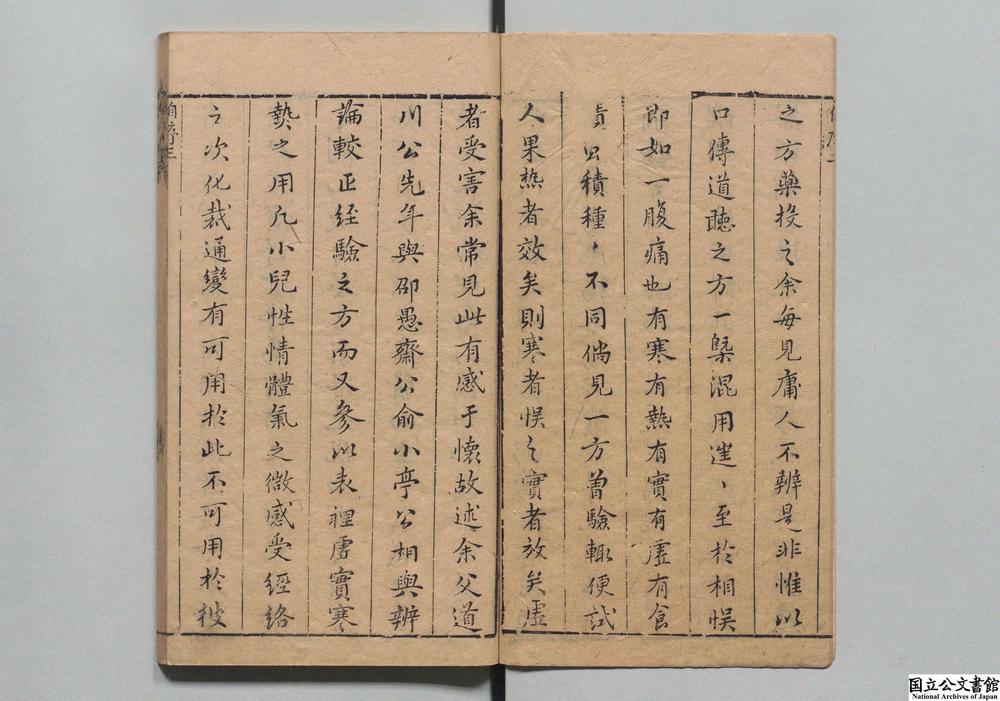 之方藥投之余每見庸人不辨是非惟以
口傳道聽之方一槩混用遑〻至於相悞
即如一腹痛也有寒有熱有實有虛有食
積種〻不同倘見一方曽驗輙便試
人果热者效矣則寒者悞之實者放矣虛
者受害余常見此有感于懷故述余父道
川公先年與邵愚齋公俞小亭公相與辨
論較正经驗之方而又參以表裡虛實寒
𤍠之用凡小兒性情體氣之微感受經絡
之次化裁通變有可用於此不可用於彼
自序三
国立公文書館
National Archives of Japan